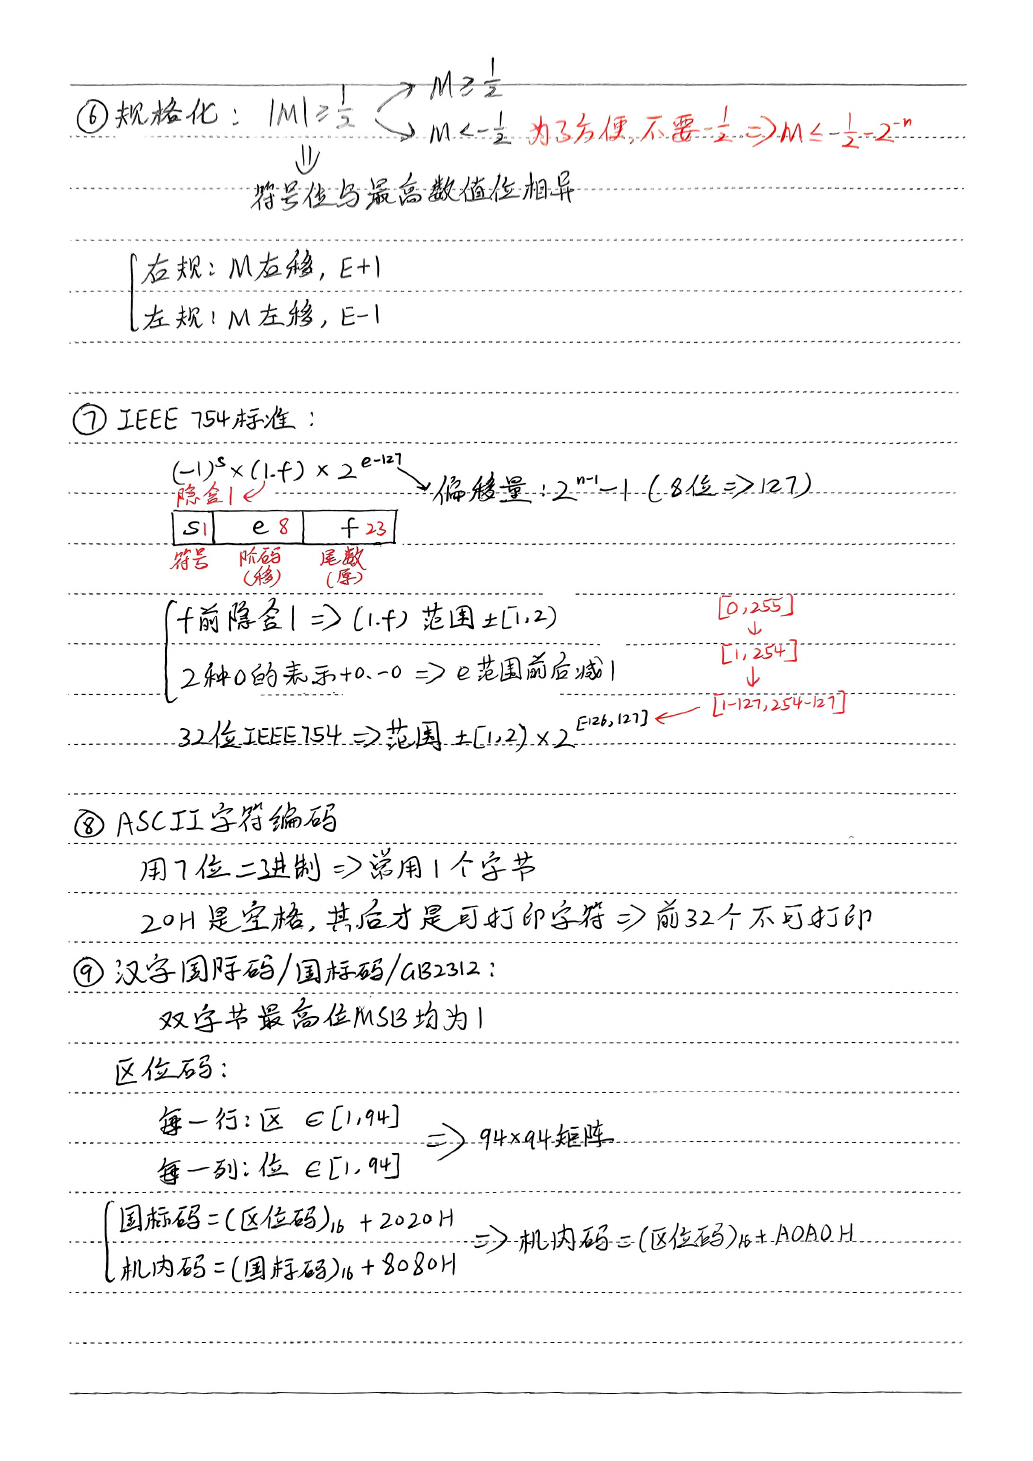 ⑥ 规格化: |M| ≥ 1/2
M ≥ 1/2
M < -1/2 为了方便,不要-1/2 => M ≤ -1/2 - 2^-n
符号位与最高数值位相异
右规: M右移, E+1
左规: M左移, E-1
⑦ IEEE 754标准:
(-1)^s × (1.f) × 2^(e-127)
偏移量: 2^(n-1) - 1 (8位 => 127)
隐含1
S1 e 8 f 23
符号 阶码(移) 尾数(原)
f前隐含1 => (1.f) 范围 ±[1,2)
2种0的表示+0、-0 => e范围前后减1
[0,255]
↓
[1,254]
↓
[1-127,254-127]
32位IEEE754 => 范围 ±[1,2) × 2^[-126,127]
⑧ ASCII字符编码
用7位二进制 => 常用1个字节
20H是空格,其后才是可打印字符 => 前32个不可打印
⑨ 汉字国际码/国标码/GB2312:
双字节最高位MSB均为1
区位码:
每一行: 区 ∈ [1,94]
每一列: 位 ∈ [1,94]
=> 94×94矩阵
国标码 = (区位码)₁₆ + 2020H
机内码 = (国标码)₁₆ + 8080H
=> 机内码 = (区位码)₁₆ + A0A0H